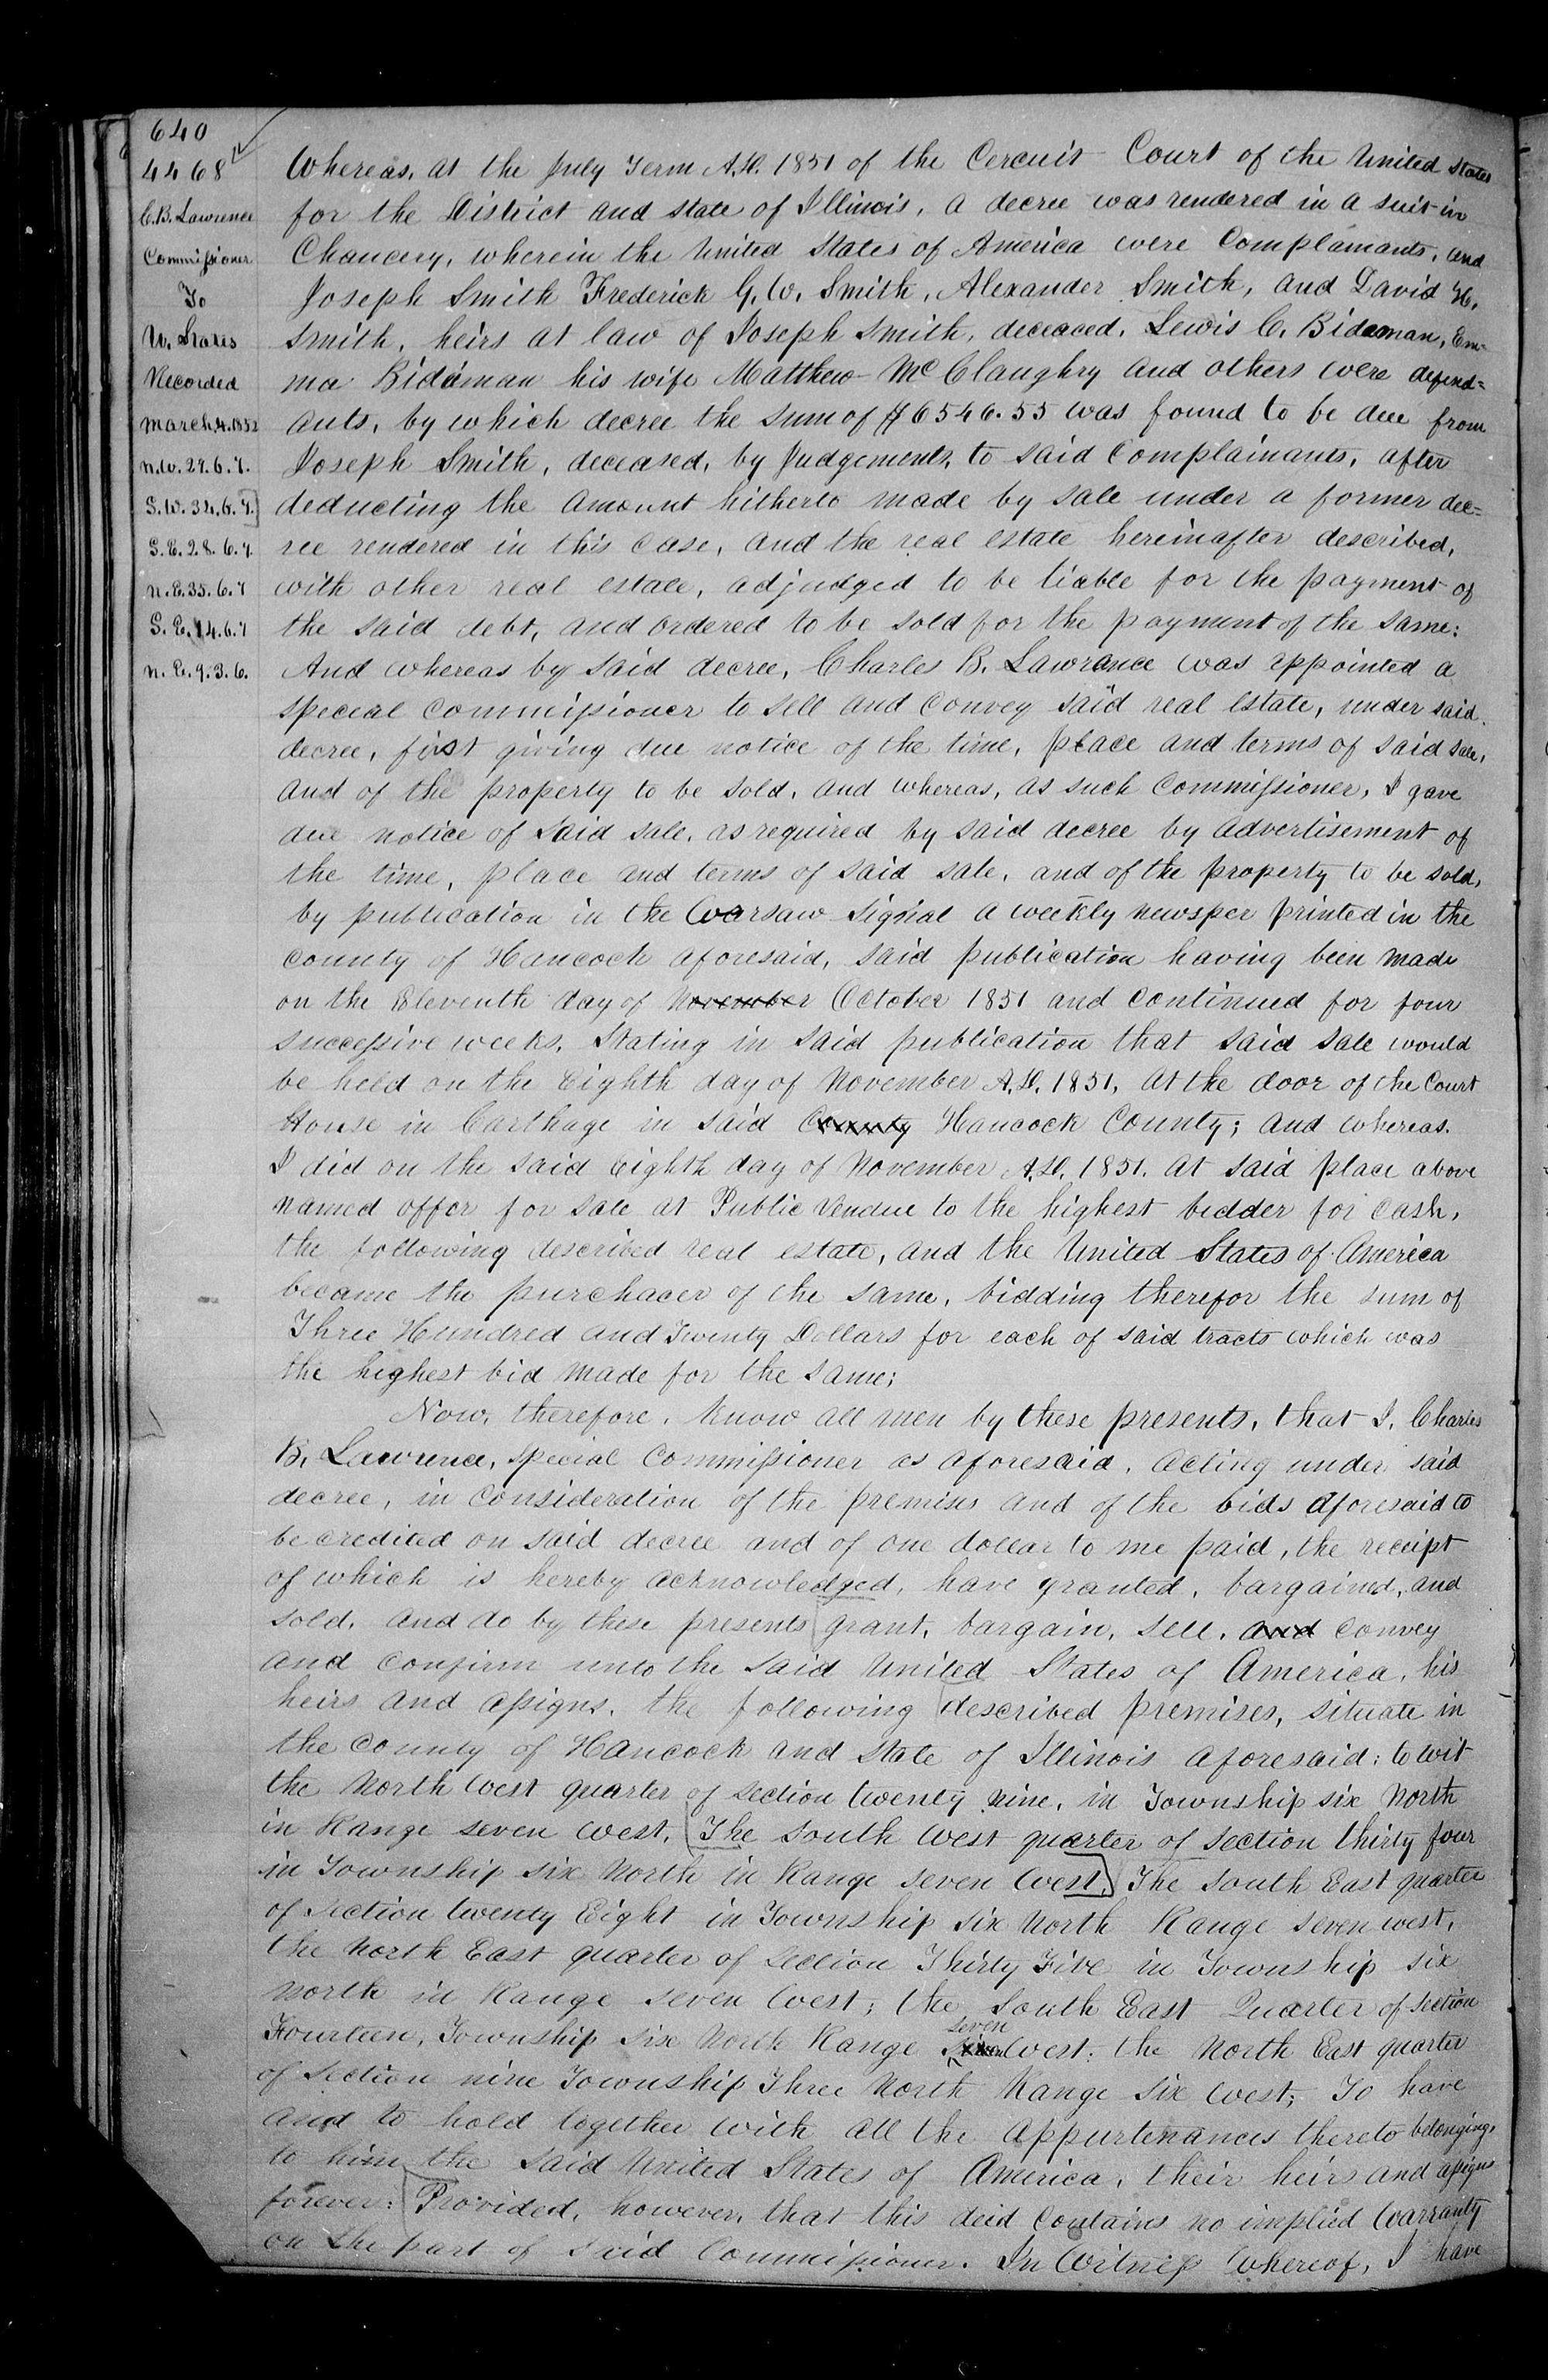 640
4468
C. B. Lawrence
Commissioner
To
U. States
Recorded
March 4. 1852
N.W. 29. 6. 7.
S.W. 34. 6. 7.
S.E. 28. 6. 7.
N.E. 35. 6. 7
S.E. 14. 6. 7
N.E. 9. 3. 6.
Whereas, at the July Term A.D. 1851 of the Cercuit Court of the United States
for the District and state of Illinois, a decree was rendered in a suit in
Chancery, wherein the United States of America were Complainants, and
Joseph Smith Frederick G. W. Smith, Alexander Smith, and David H.
Smith, heirs at law of Joseph Smith, deceased, Lewis C. Bidaman, Em=
ma Bidaman his wife Matthew McClaughry and others were defend=
ants, by which decree the sum of $6546.55 was found to be due from
Joseph Smith, deceased, by Judgements, to said Complainants, after
deducting the amount hitherto made by sale under a former dec=
ree rendered in this case, and the real estate hereinafter described,
with other real estate, adjudged to be liable for the payment of
the said debt, and ordered to be sold for the payment of the same:
And whereas by said decree, Charles B. Lawrance was appointed a
special commissioner to sell and convey said real estate, under said
decree, first giving due notice of the time, place and terms of said sale,
and of the property to be sold, and whereas, as such Commissioner, I gave
due notice of said sale, as required by said decree by advertisement of
the time, place and terms of said sale, and of the property to be sold,
by publication in the Warsaw Signal a weekly newsper printed in the
county of Hancock aforesaid, said publication having been made
on the Eleventh day of November October 1851 and continued for four
successive weeks, Stating in said publication that said sale would
be held on the Eighth day of November A.D. 1851, at the door of the Court
House in Carthage in said County Hancock County; and whereas.
I did on the said Eighth day of November A.D. 1851. at said place above
named offer for sale at Public Vendue to the highest bidder for cash,
the following described real estate, and the United States of America
became the purchacer of the same, bidding therefor the sum of
Three Hundred and Twenty Dollars for each of said tracts which was
the highest bid made for the same;
Now, therefore, Know all men by these presents, that I, Charles
B. Lawrence, special Commissioner as aforesaid, acting under said
decree, in consideration of the premises and of the bids aforesaid to
be credited on said decree and of one dollar to me paid, the receipt
of which is hereby acknowledged, have granted, bargained, and
sold, and do by these presents grant, bargain, sell, and convey
and confirm unto the said United States of America, his
heirs and assigns, the following described premises, situate in
the County of Hancock and State of Illinois aforesaid: to wit
the North West quarter of section twenty nine, in Township six North
in Range seven west, The South West quarter of section thirty four
in Township six North in Range seven West, The South East quarter
of section twenty Eight in Township six North Range seven west,
the North East quarter of section Thirty Five in Township six
North in Range seven West; the South East Quarter of section
Fourteen, Township six North Range seven West: the North East quarter
of Section nine Township Three North Range six West; To have
and to hold together with all the appurtenances thereto belonging,
to him the said United States of America, their heirs and assigns
forever: Provided, however, that this deed contains no implied Warranty
on the part of said Commissioner. In Witness Whereof, I have